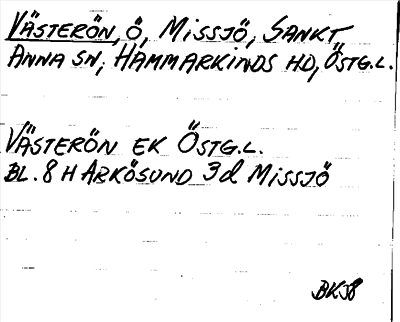 VÄSTERÖN, Ö, MISSJÖ, SANKT
ANNA SN, HAMMARKINDS HD, ÖSTG.L.
VÄSTERÖN EK ÖSTG.L.
BL. 8 H ARKÖSUND 3d MISSJÖ
BKJ8